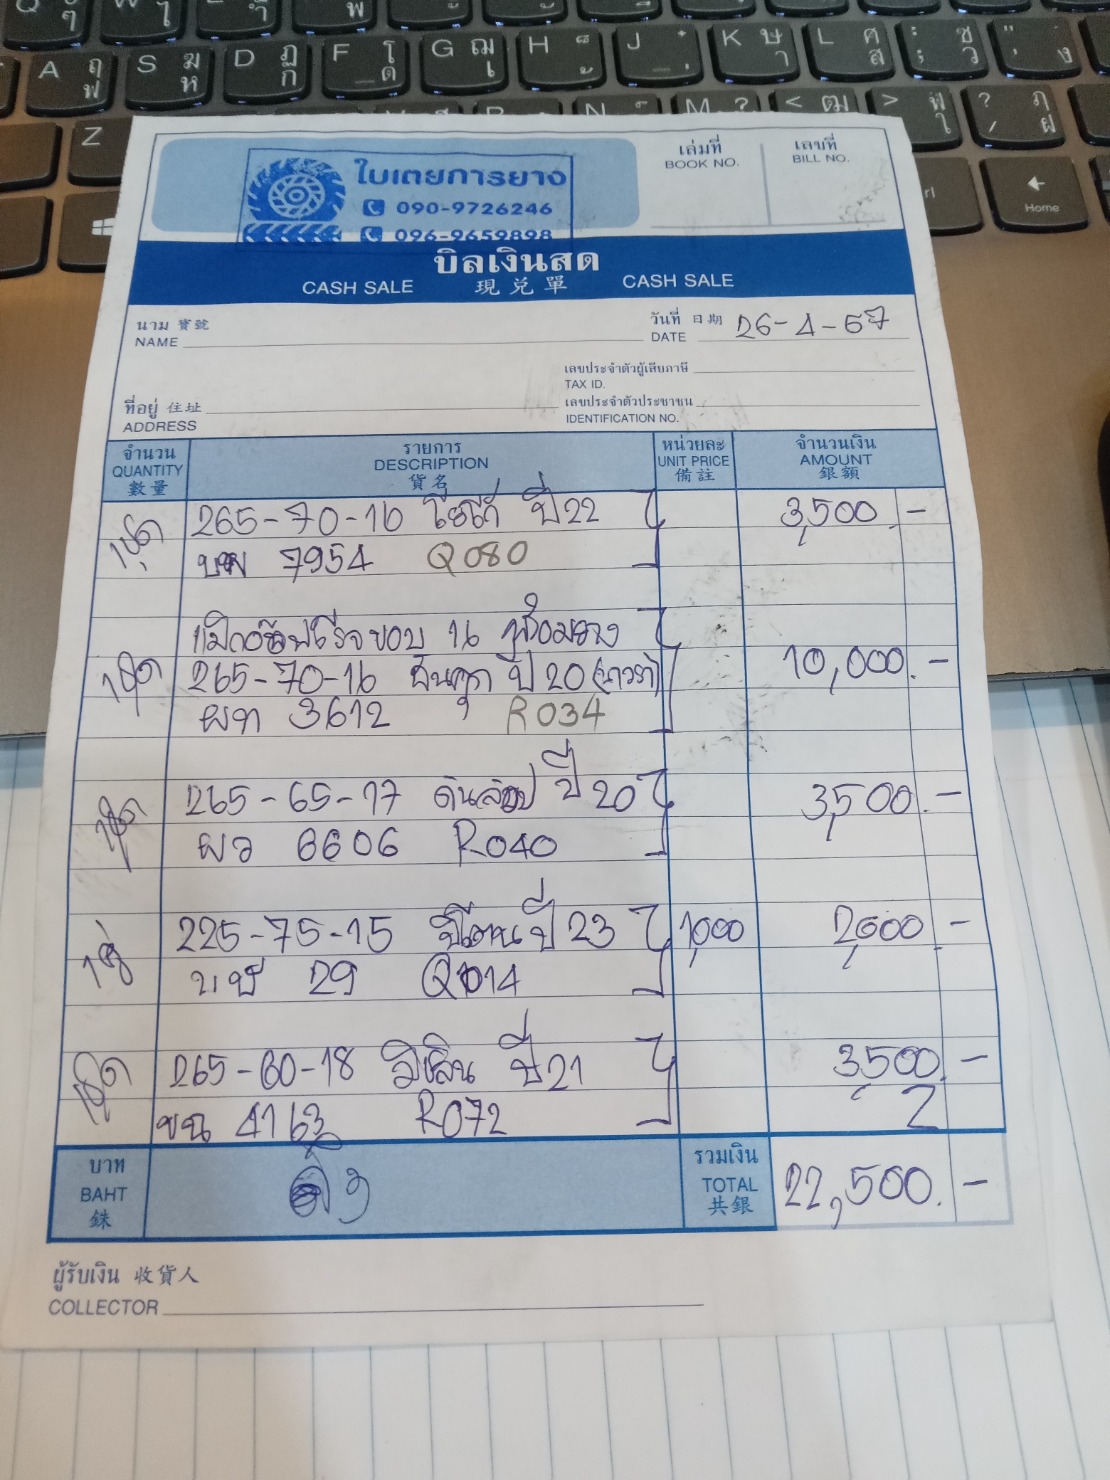 Q ๆ
W ไ
A ฤ ฟ
S ฆ ห
D ฏ ก
F โ ด
G ฌ เ
H ็ ้
J ๋ ่
K ษ า
L ศ ส
; ซ ว
ง
Z
N
M ?
< ฒ
> ฬ ใ
? ฦ / ฝ
Home
ใบเตยการยาง
090-9726246
096-9659898
เล่มที่
BOOK NO.
เลขที่
BILL NO.
บิลเงินสด
CASH SALE 現兌單 CASH SALE
นาม 寶號
NAME
วันที่ 日期 26-4-67
DATE
เลขประจำตัวผู้เสียภาษี
TAX ID.
ที่อยู่ 住址
ADDRESS
เลขประจำตัวประชาชน
IDENTIFICATION NO.
จำนวน QUANTITY 數量
รายการ DESCRIPTION 貨名
หน่วยละ UNIT PRICE 備註
จำนวนเงิน AMOUNT 銀額
1ชุด 265-70-16 ปี 22 3,500 -
7954 Q080
ขอบ 16 พร้อมยาง
1ชุด 265-70-16 ปี 20 10,000.-
ผท 3612 R034
1ชุด 265-65-17 ดันลอป ปี 20 3,500.-
ผว 6606 R040
1คู่ 225-75-15 ปี 23 1,000 2,000 -
29 Q1014
1ชุด 265-60-18 มิชลิน ปี 21 3,500.-
ขฉ 4163 R072
3
บาท BAHT 銖
รวมเงิน TOTAL 共銀 22,500.-
ผู้รับเงิน 收貨人
COLLECTOR